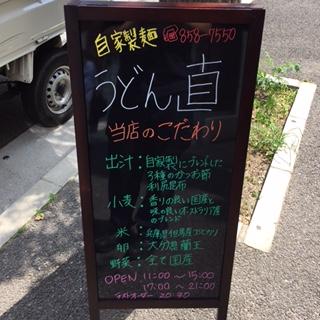 自家製麺 ☎858-7550
うどん 直
当店のこだわり
出汁：自家製にブレンドした
3種のかつお節
利尻昆布
小麦：香りの良い国産と
味の良いオーストラリア産
のブレンド
米：兵庫県但馬産コシヒカリ
卵：大分県蘭王
野菜：全て国産
OPEN 11:00～15:00
17:00～21:00
ラストオーダー 20:30